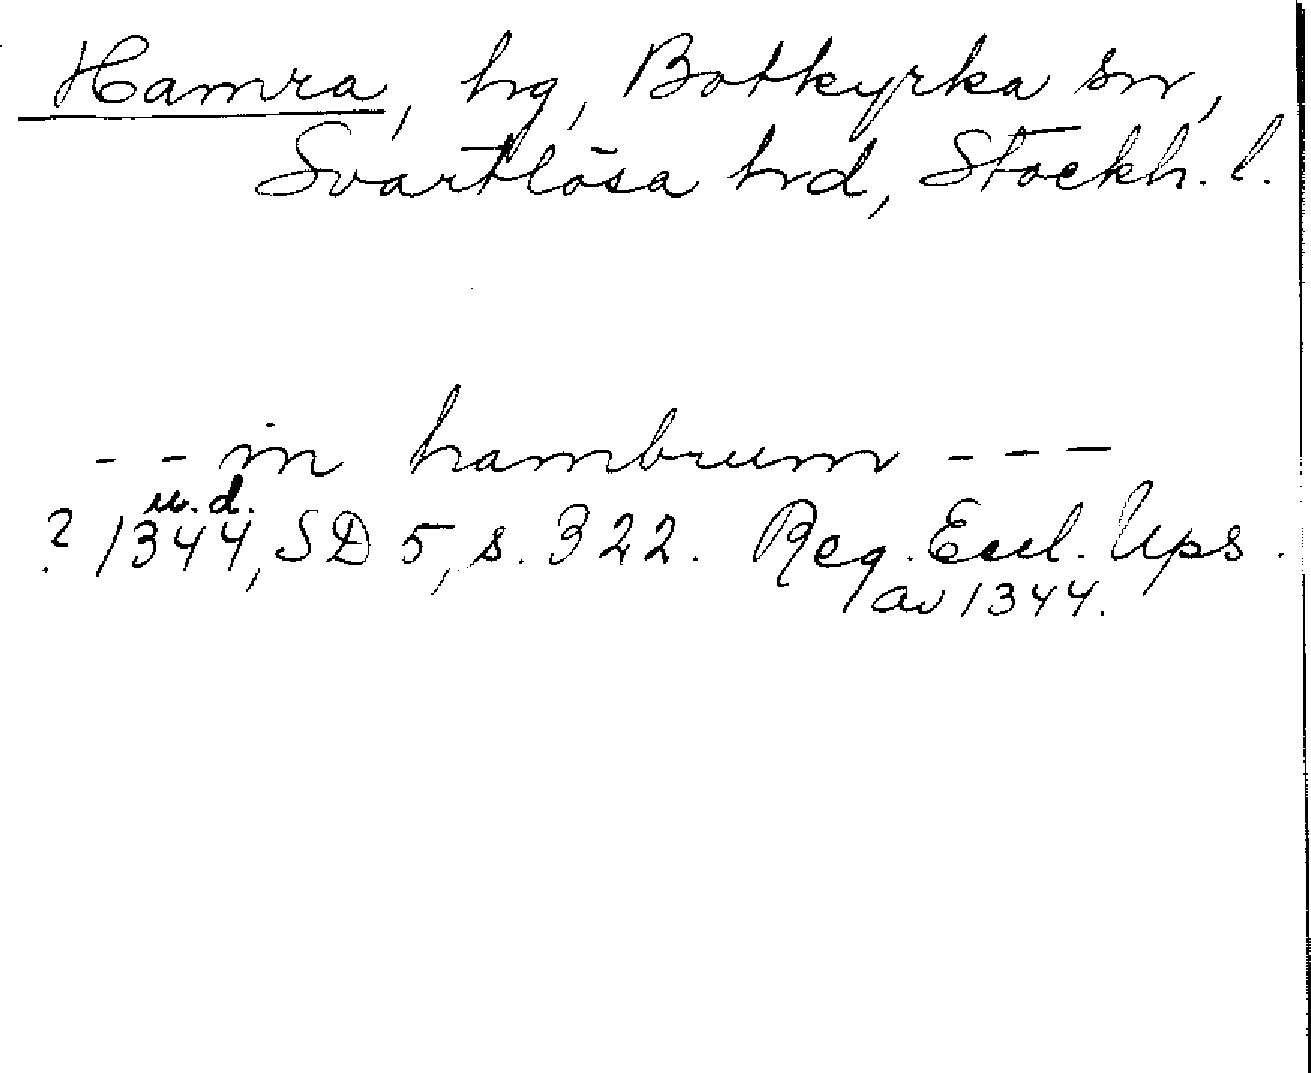 Hamra, hg, Botkyrka sn,
Svartlösa hrd, Stockh. l.
- - in hambrum - - -
u.d.
? 1344, SD 5, s. 322. Reg. Eccl. Ups.
av 1344.